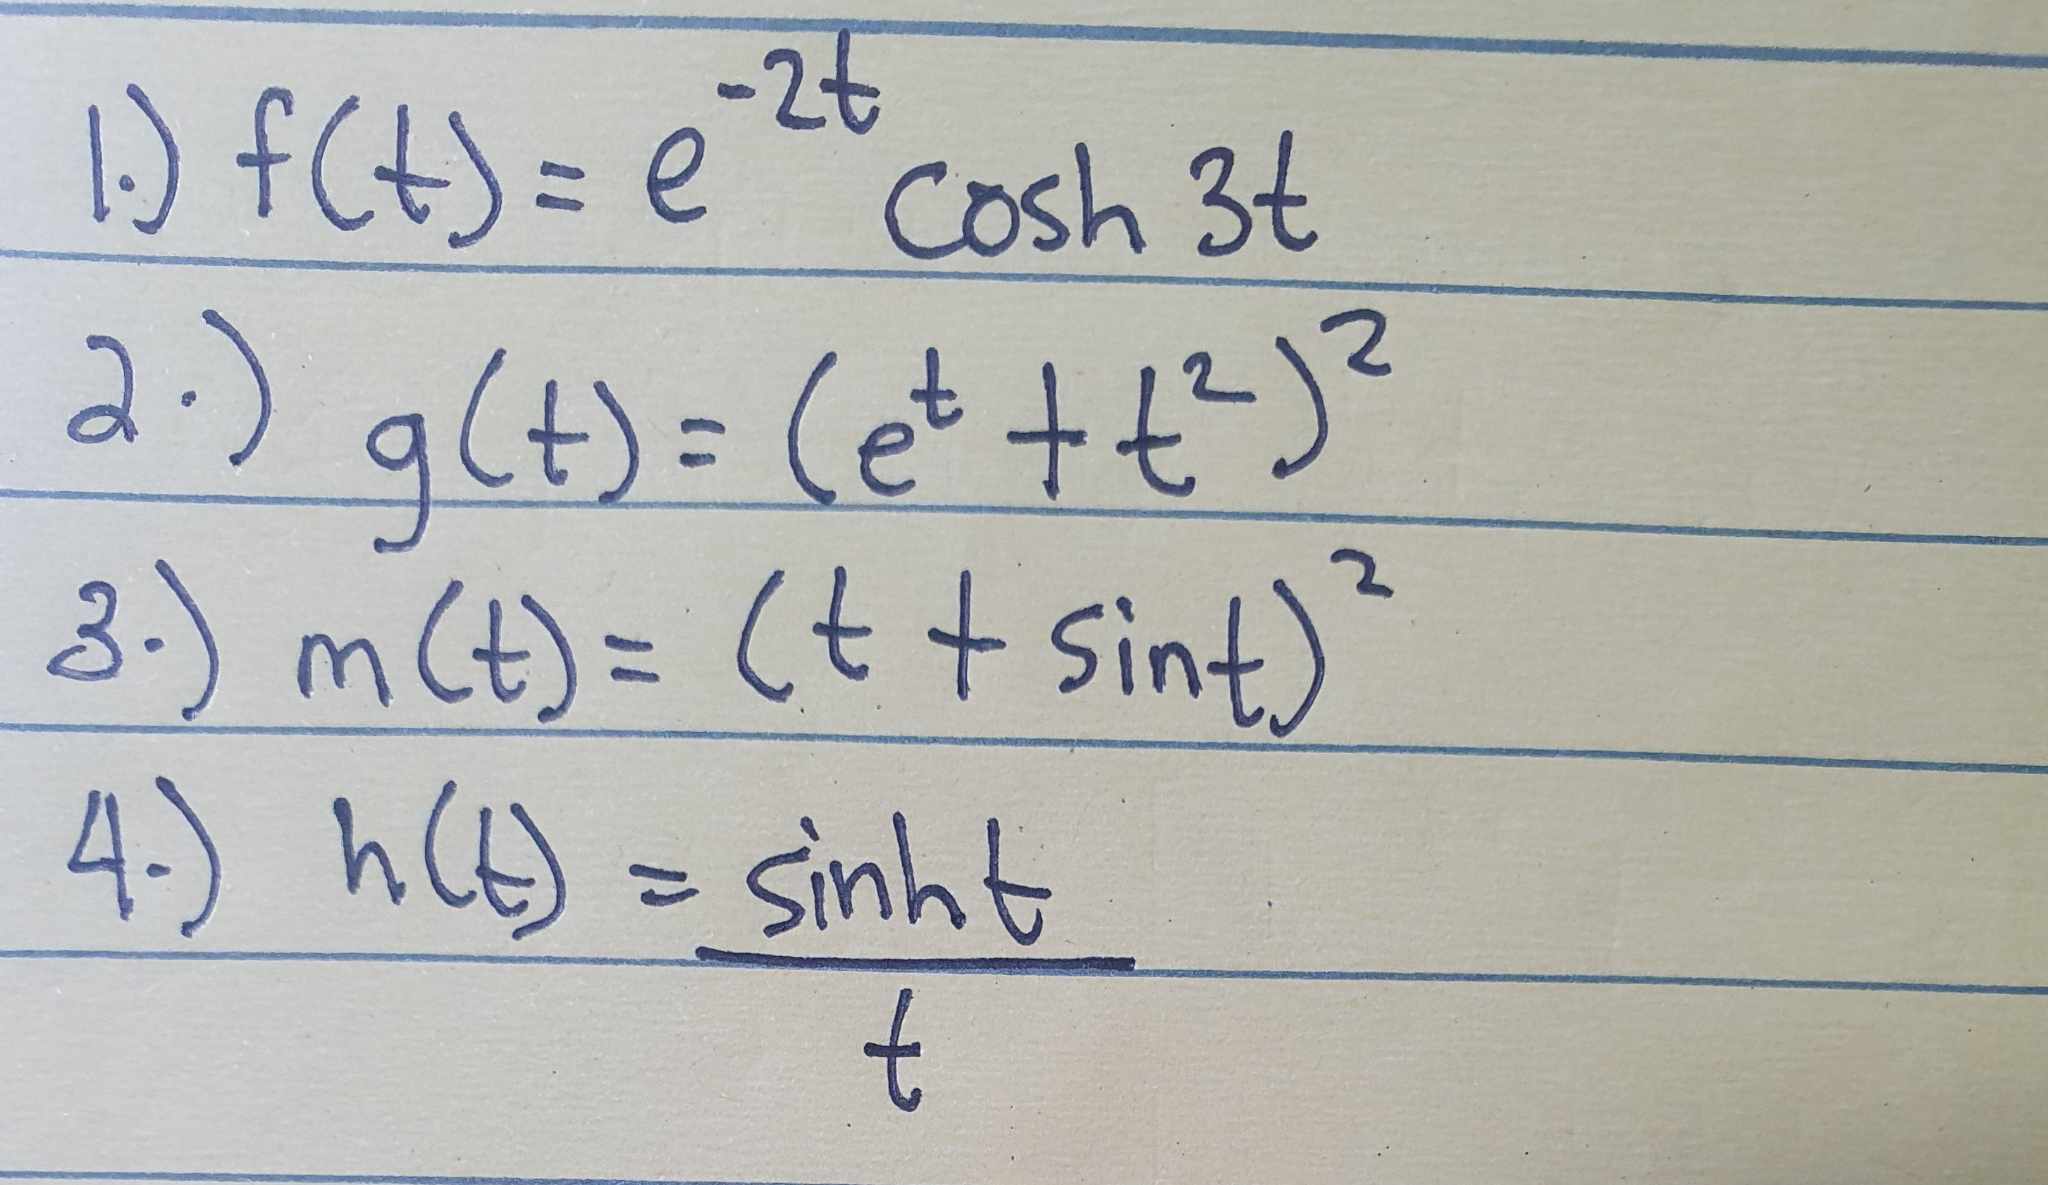 1.) f(t) = e^{-2t} cosh 3t
2.) g(t) = (e^t + t²)²
3.) m(t) = (t + sint)²
4.) h(t) = sinh t
t